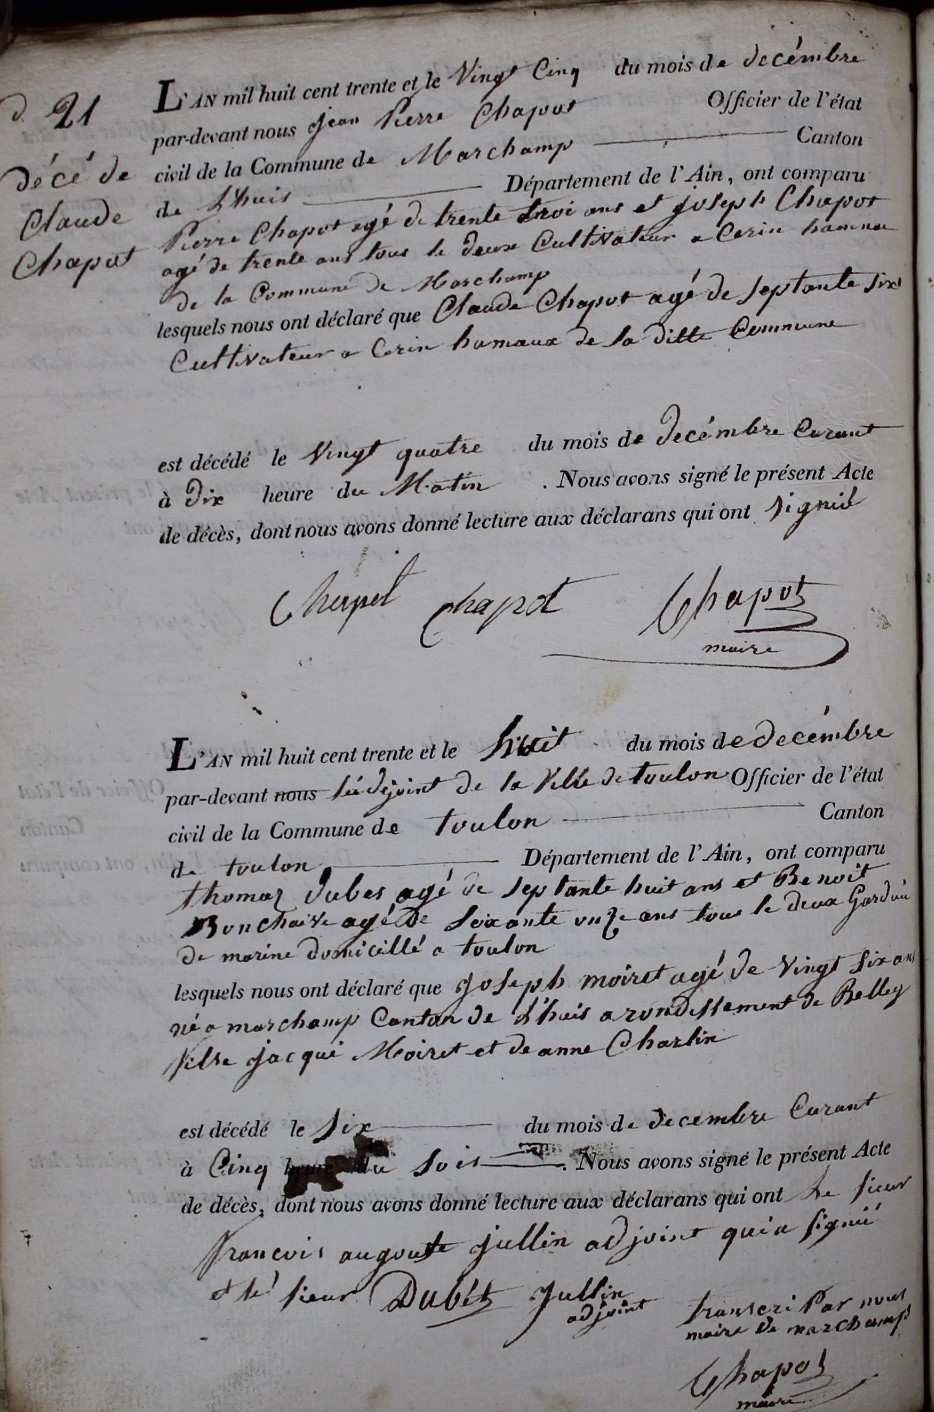 21
décé de
Claude
Chaput
L'AN mil huit cent trente et le Vingt Cinq du mois de decémbre
par-devant nous jean Pierre Chaput Officier de l'état
civil de la Commune de Marchamp Canton
de Lhuis Département de l'Ain, ont comparu
Pierre Chaput agé de trente troi ans et joseph Chaput
agé de trente ans tous le deux Cultivateur a Cerin hamau
de la Commune de Marchamp
lesquels nous ont déclaré que Claude Chaput agé de septante six
Cultivateur a Cerin hamaux de la ditte Commune
est décédé le Vingt quatre du mois de decémbre Curant
à Dix heure du Matin . Nous avons signé le présent Acte
de décès, dont nous avons donné lecture aux déclarans qui ont signié
Chapot Chapot
maire
L'AN mil huit cent trente et le huit du mois de decémbre
par-devant nous l'adjoint de la Ville de toulon Officier de l'état
civil de la Commune de toulon Canton
de toulon Département de l'Ain, ont comparu
thomaz Dubes agé de septante huit ans et Benoit
agé de soixante onze ans tous le deux Gardien
de marine domicillé a toulon
lesquels nous ont déclaré que joseph moiret agé de Vingt six ans
né a marchamp Canton de Lhuis arondissement de Belley
fils de jacqui Moiret et de anne Charlin
est décédé le six du mois de decembre Curant
à Cinq heure du soir . Nous avons signé le présent Acte
de décès, dont nous avons donné lecture aux déclarans qui ont le sieur
francois augouste jullin adjoint qui a signié
et le sieur Dubés Jullin
adjoint
transcri Par nous
maire de marchamp
Chapot
maire